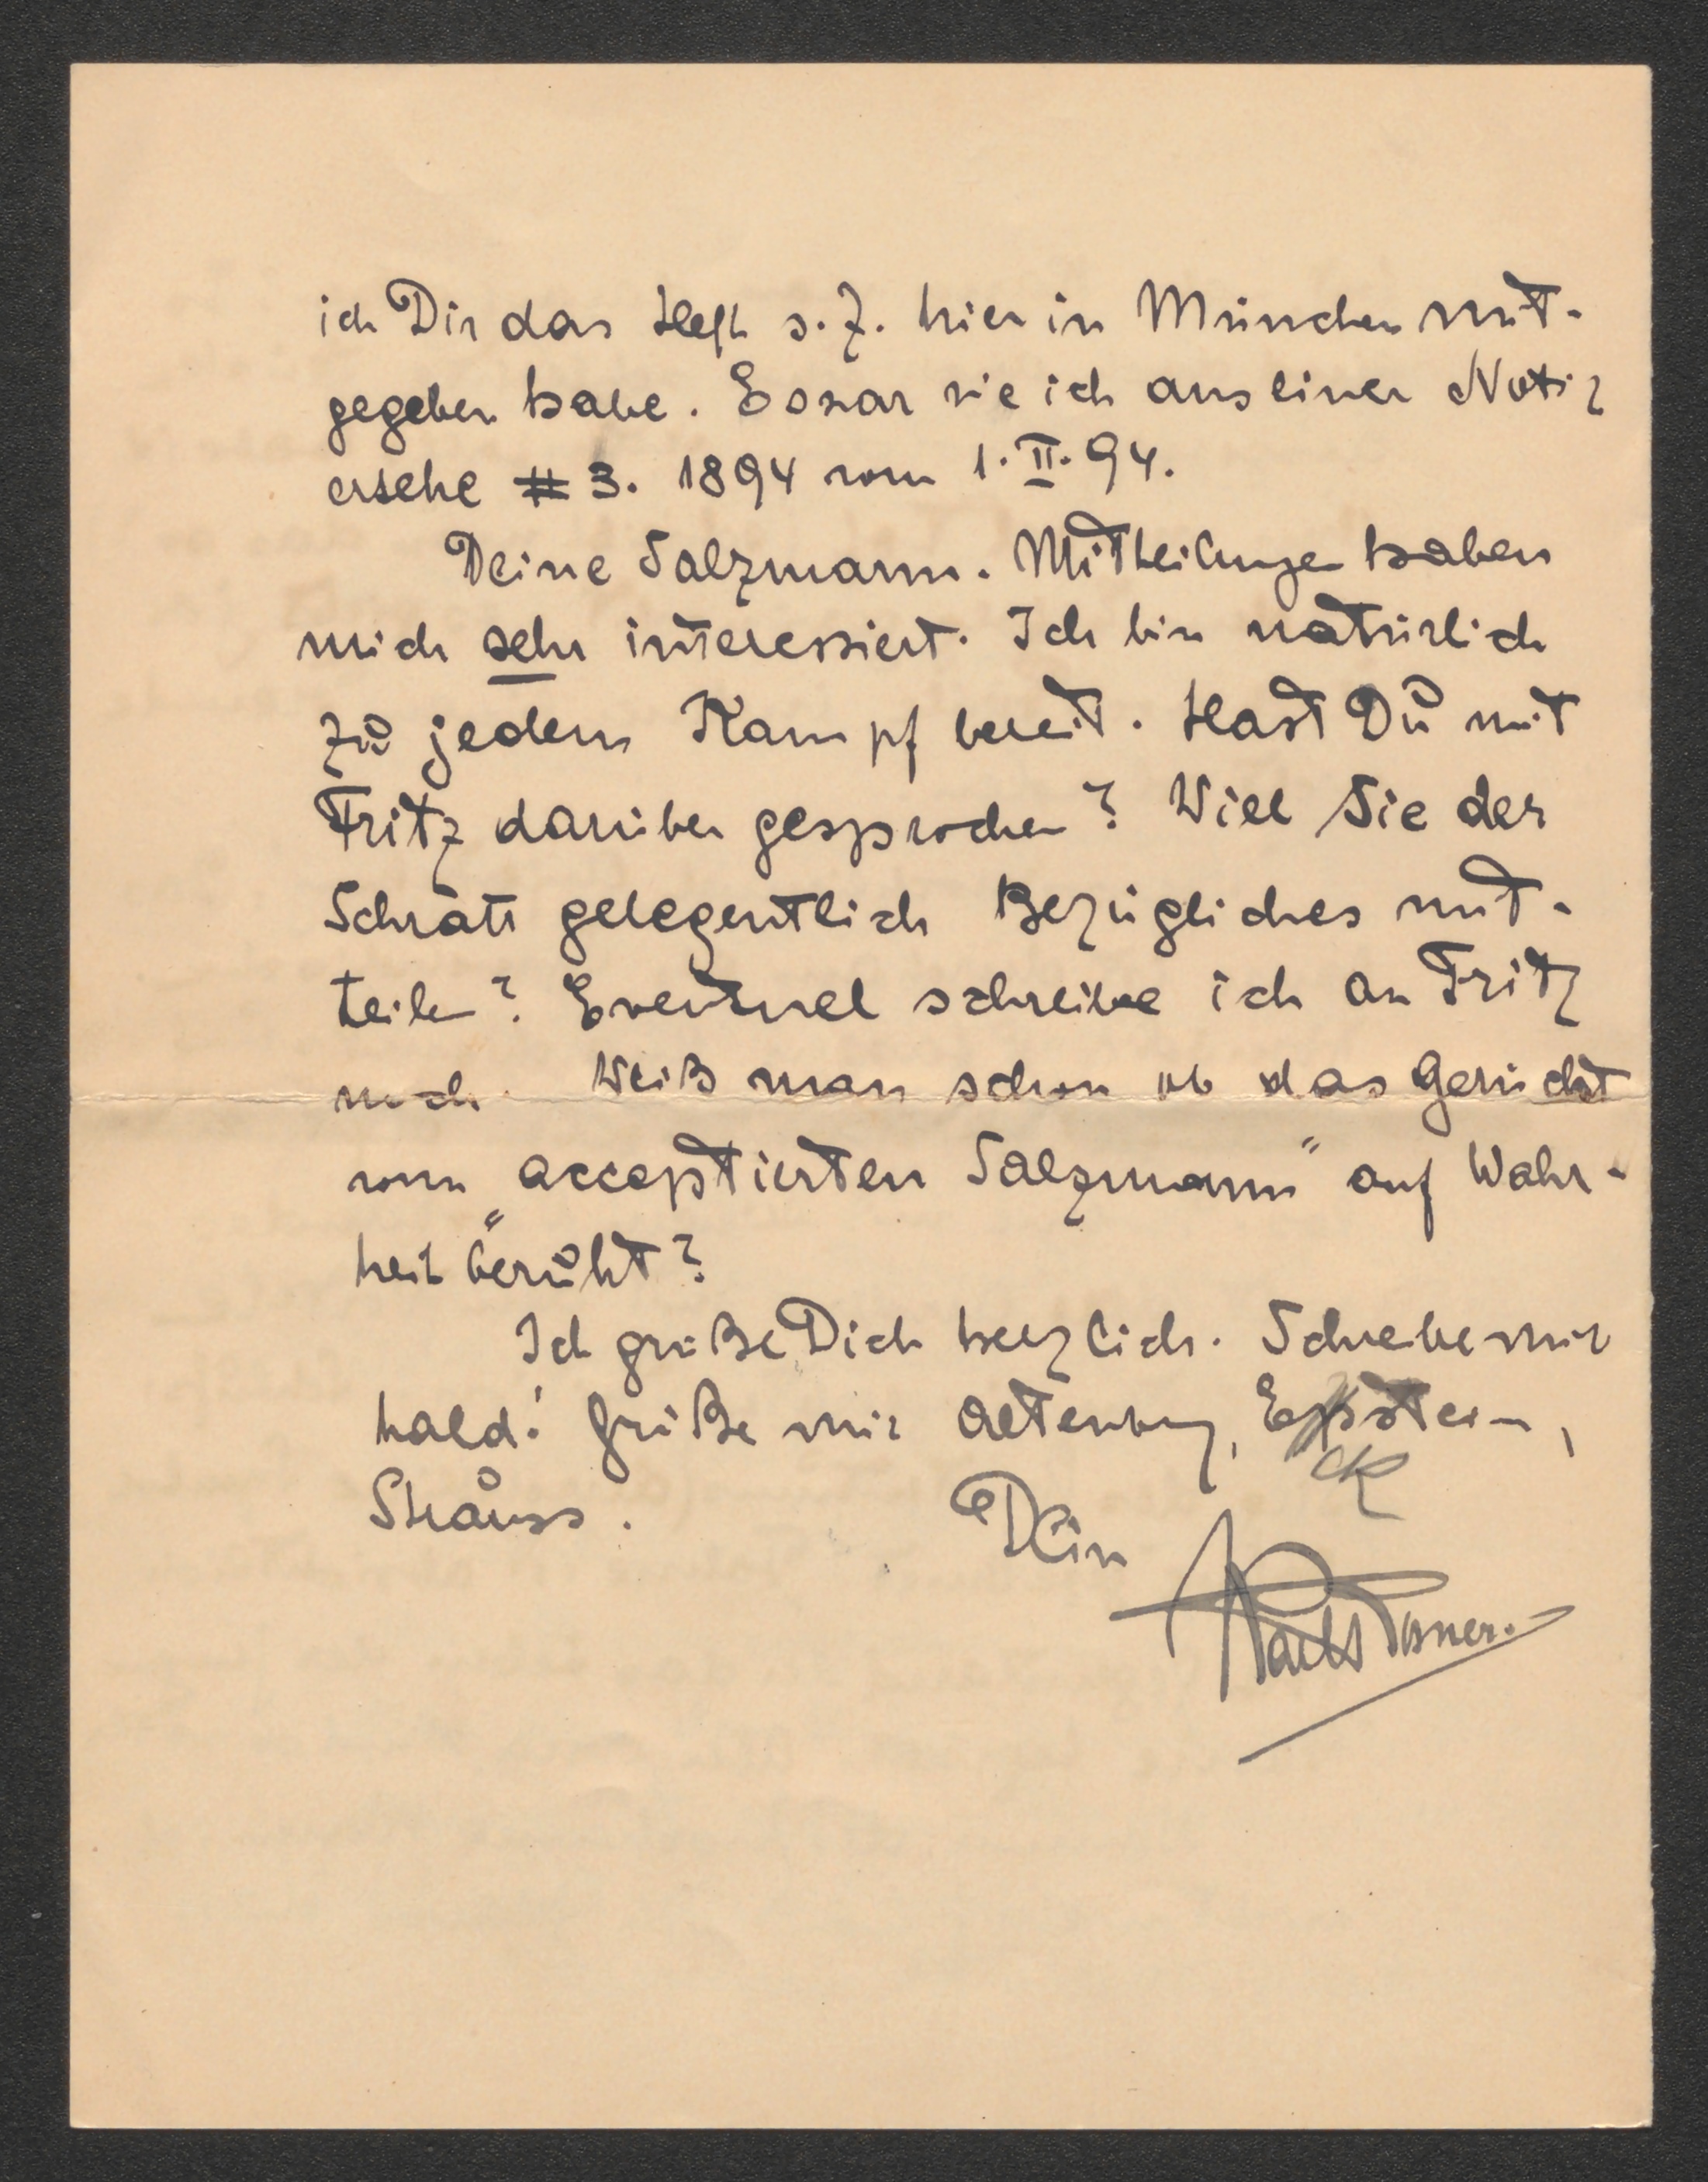 ich Dir das Heft s. Z. hier in München mit-
gegeben habe. Es war wie ich aus einer Notiz
ersehe # 3. 1894 vom 1. II. 94.
Deine Salzmann-Mittheilungen haben
mich sehr interessiert. Ich bin natürlich
zu jedem Kampf bereit. Hast Du mit
Fritz darüber gesprochen? Will Sie der
Schratt gelegentlich Bezügliches mit-
teilen? Eventuel schreibe ich an Fritz
noch. Weiß man schon ob das Gerücht
vom „acceptierten Salzmann“ auf Wahr-
heit beruht?
Ich grüße Dich herzlich. Schreibe mir
bald! Grüße mir Altenberg, Eckstein,
Strauss.
Dein